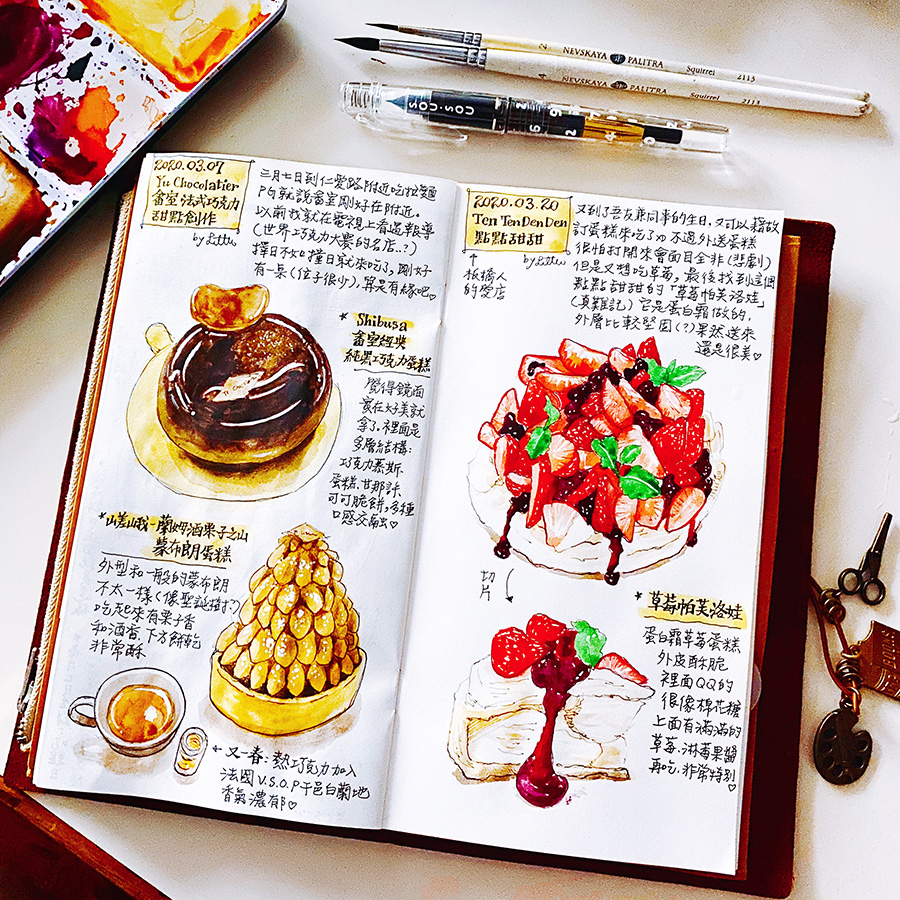 NEVSKAYA PALITRA Squirrel 2113
NEVSKAYA PALITRA Squirrel 2113
2020.03.07
Yu Chocolatier
畬室法式巧克力
甜點創作
by Littw
三月七日到仁愛路附近吃拉麵
PG就說畬室剛好在附近。
以前我就在電視上看過報導
(世界巧克力大賽的名店..?)
擇日不如撞日就來吃了,剛好
有一景(位子很少),算是有緣吧♡
* Shibusa
畬室經典
純黑巧克力蛋糕
覺得鏡面
實在好美就
拿了,裡面是
多層結構:
巧克力慕斯.
蛋糕.甘那許.
可可脆餅,多種
口感交融♡
*山差山我-蘭姆酒栗子之山
蒙布朗蛋糕
外型和一般的蒙布朗
不太一樣(像聖誕樹?)
吃起來有栗子香
和酒香,下方餅乾
非常酥
←又一春:熱巧克力加入
法國V.S.O.P干邑白蘭地
香氣濃郁♡
2020.03.20
Ten Ten Den Den
點點甜甜
by Littw
↑
板橋人
的愛店
又到了吾友兼同事的生日,又可以藉故
訂蛋糕來吃了 不過外送蛋糕
很怕打開來會面目全非(悲劇)
但是又想吃草莓,最後找到這個
點點甜甜的「草莓帕芙洛娃」
(真難記)它是蛋白霜做的,
外層比較堅固(?)果然送來
還是很美♡
切
片
*草莓帕芙洛娃
蛋白霜草莓蛋糕
外皮酥脆
裡面QQ的
很像棉花糖
上面有滿滿的
草莓,淋莓果醬
再吃,非常特別
♡